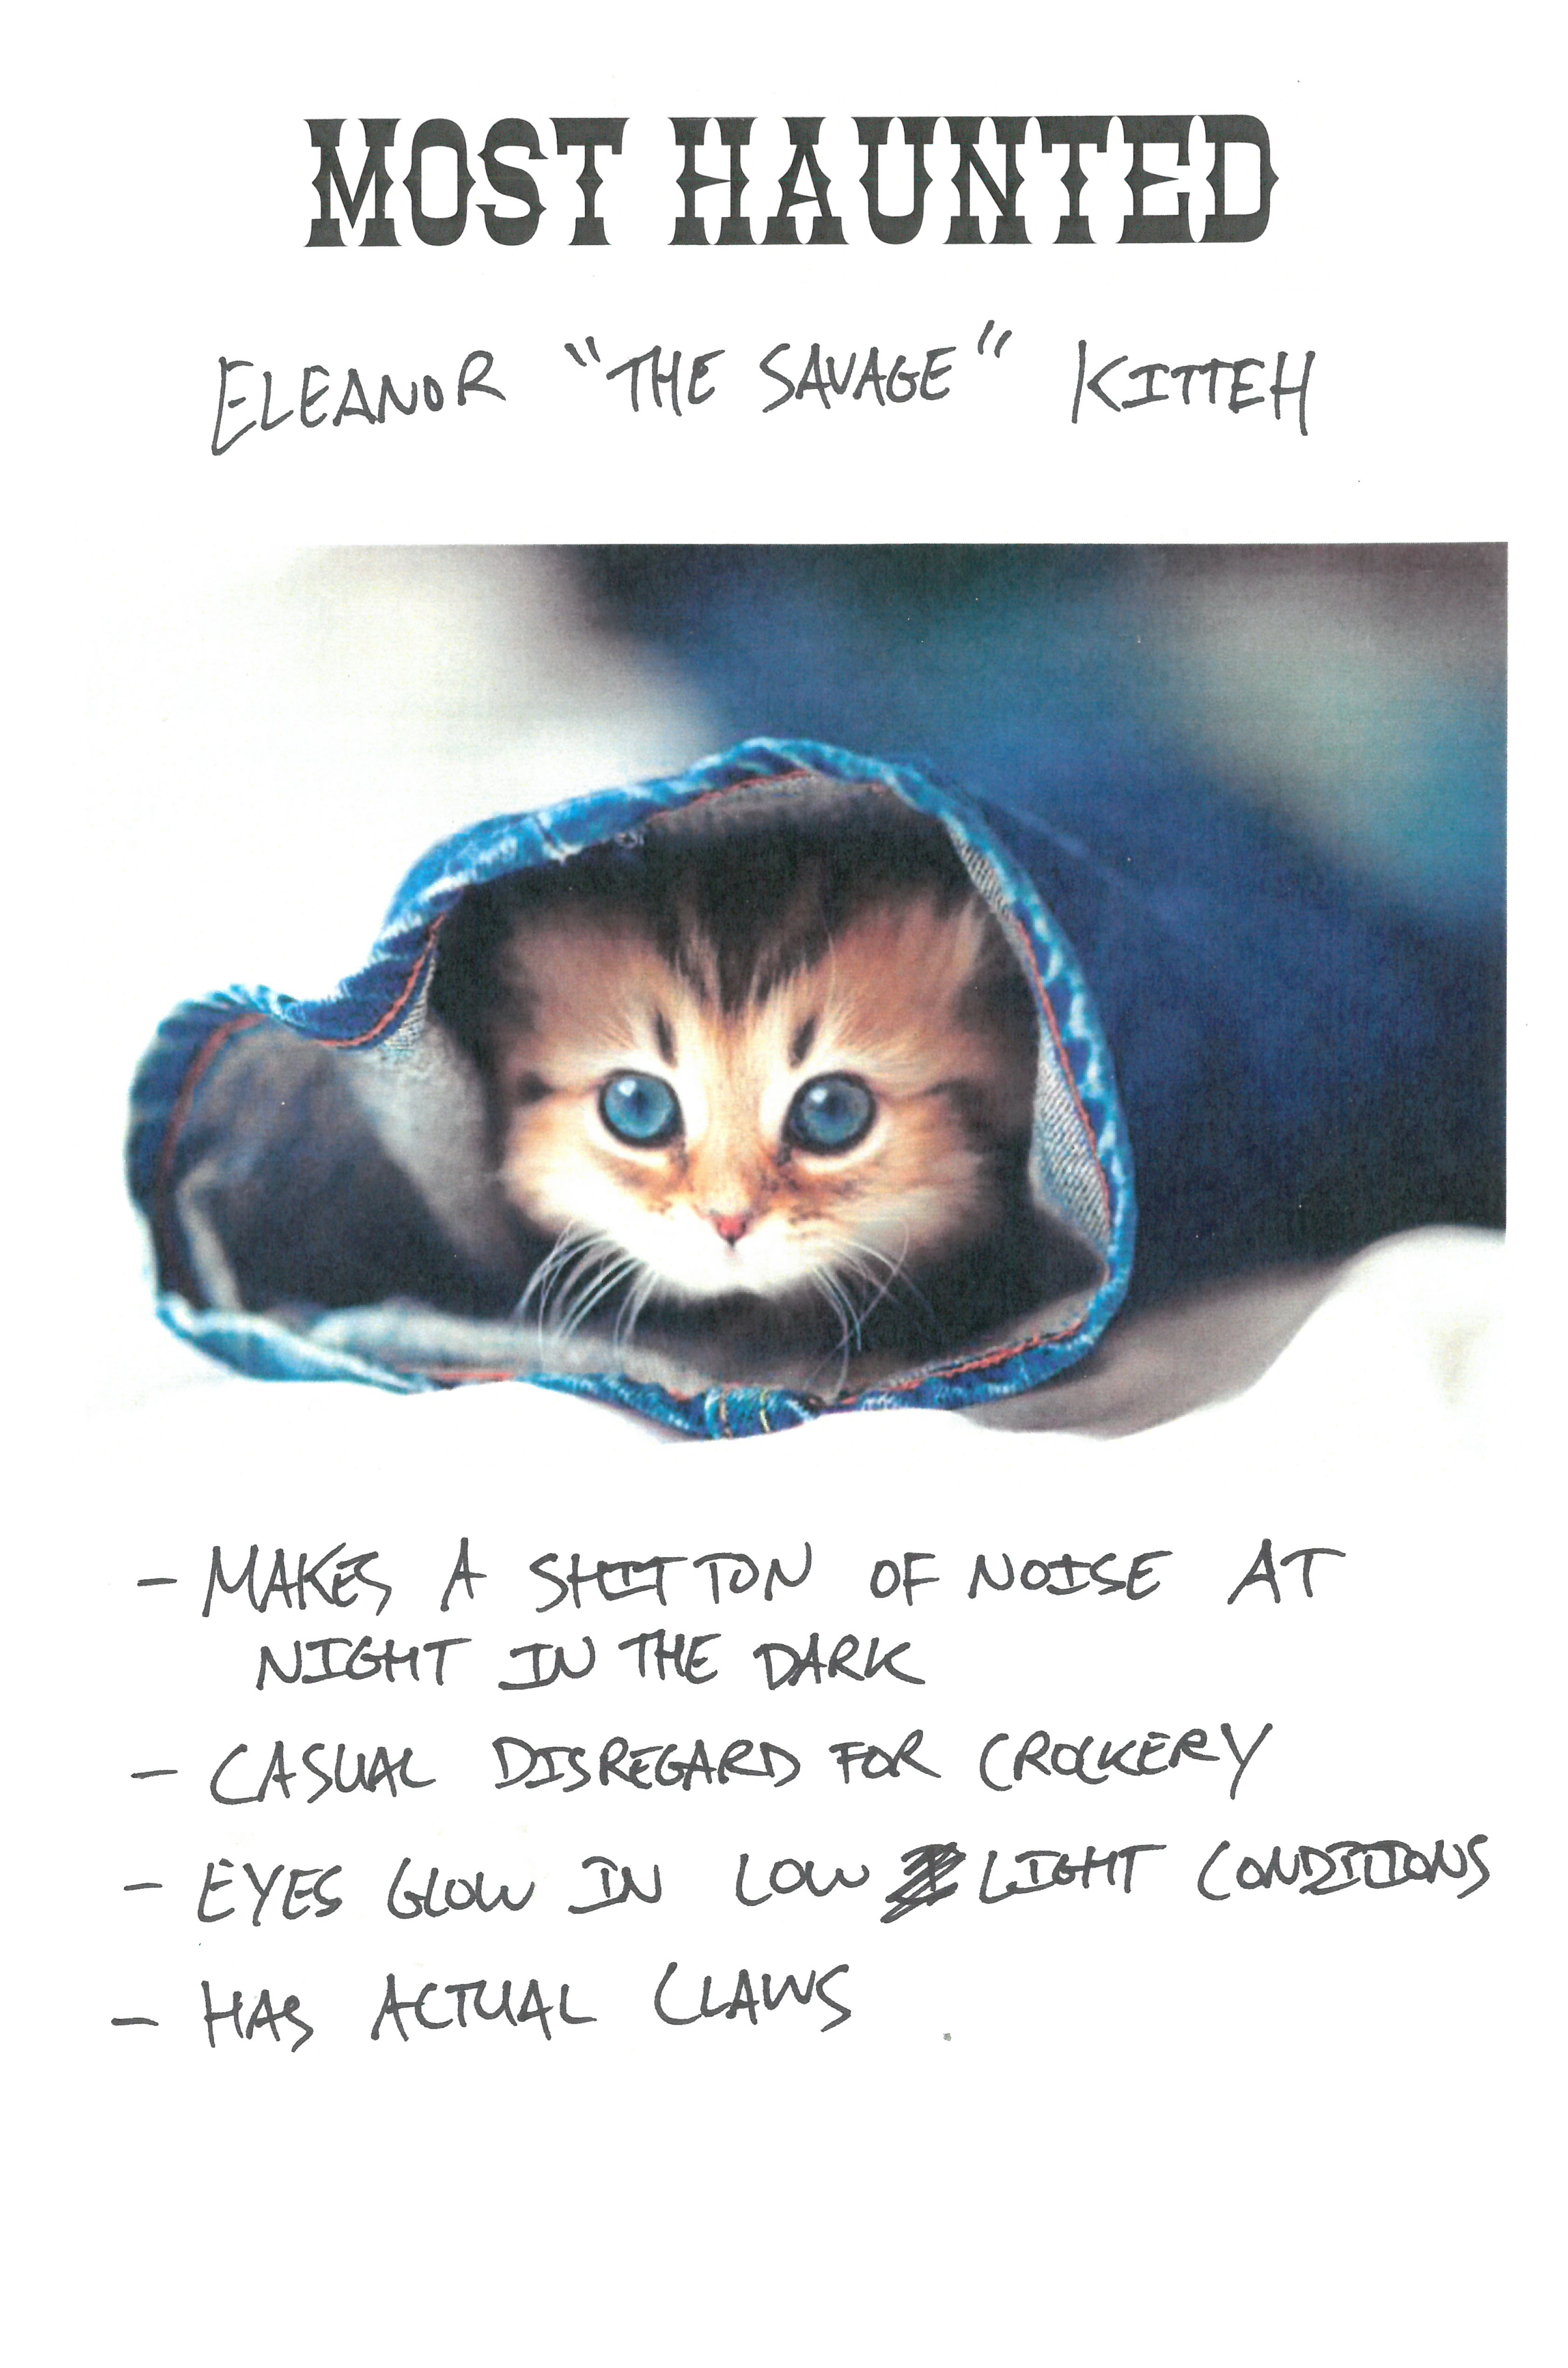 MOST HAUNTED
ELEANOR "THE SAVAGE" KITTEH
- MAKES A SHIT TON OF NOISE AT
NIGHT IN THE DARK
- CASUAL DISREGARD FOR CROCKERY
- EYES GLOW IN LOW LIGHT CONDITIONS
- HAS ACTUAL CLAWS